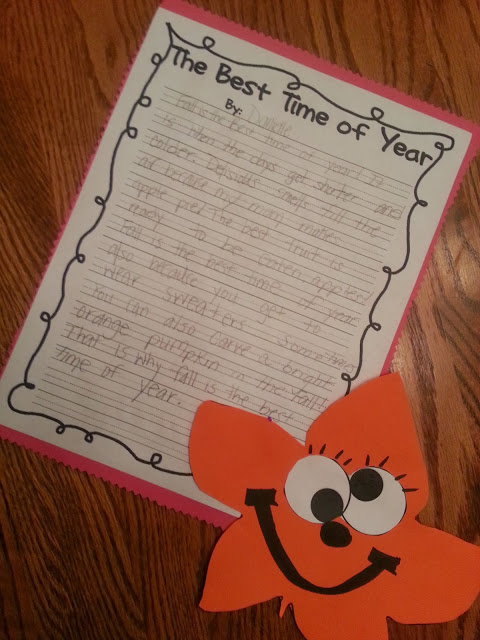 The Best Time of Year
By: Danielle
Fall is the best time of year! It
is when the days get shorter and
colder. Delisious smells fill the
air because my mom makes
apple pie! The best fruit is
ready to be eaten, apples!
Fall is the best time of year
also because you get to
wear sweaters sometimes.
You can also carve a bright
orange pumpkin in the fall!
That is why fall is the best
time of year.